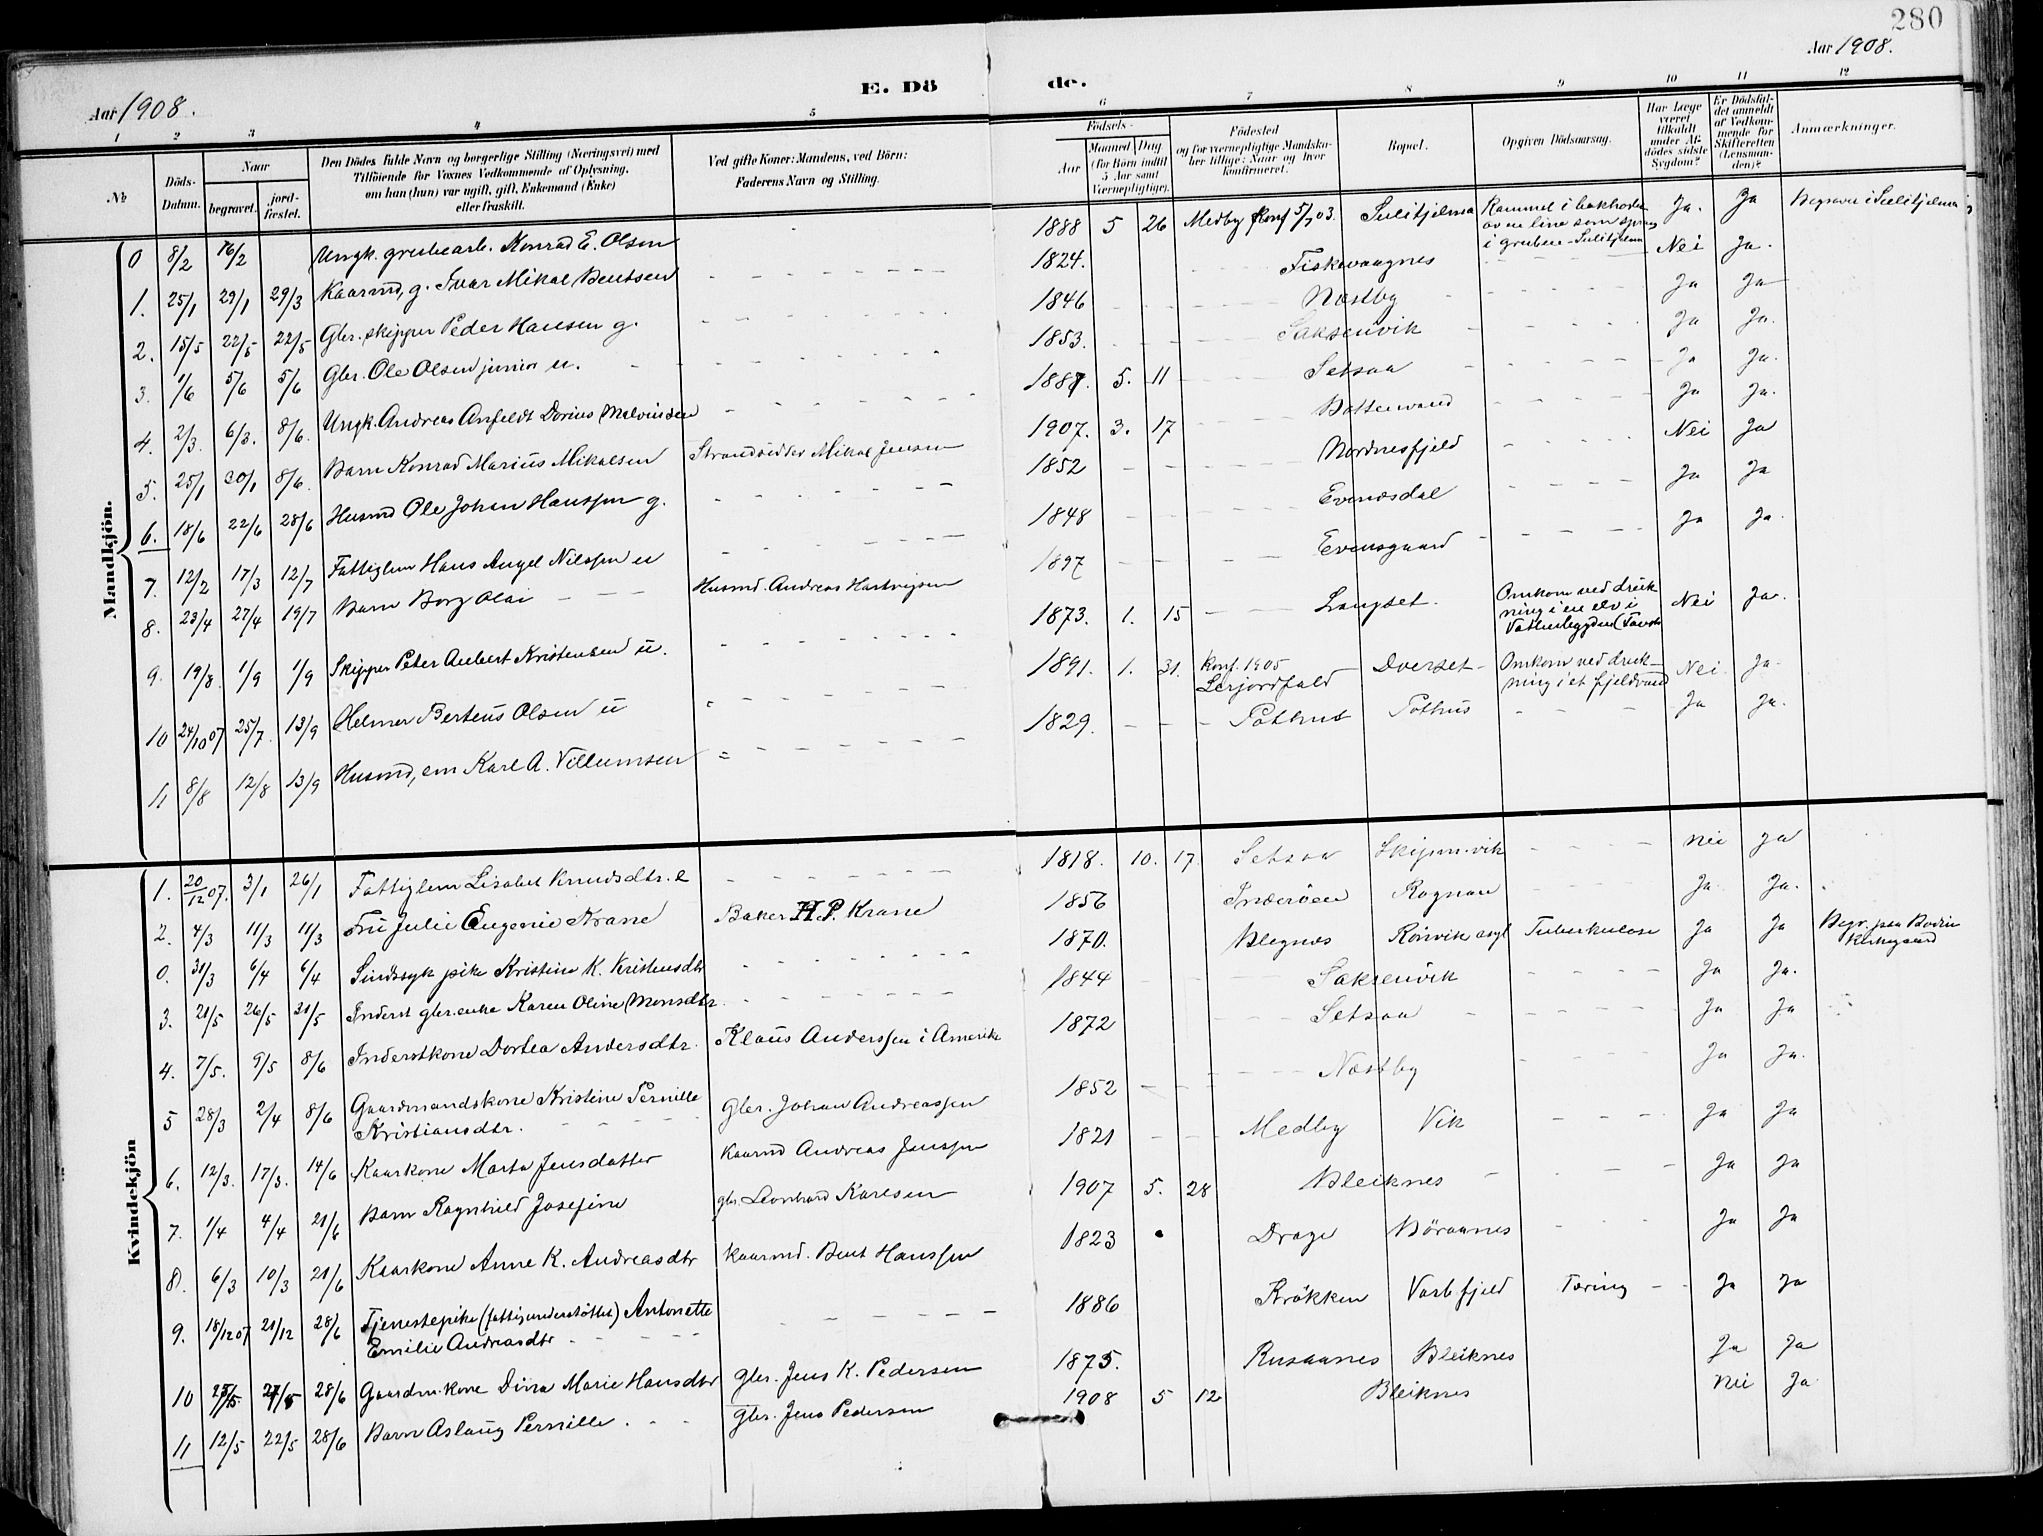 280
Aar 1908.
Aar 1908.
E. Dö
de.
1 2 3 4 5 6 7 8 9 10 11 12
No
Döds-Datum.
Naar
begravet.
jord-fæstet.
Den Dödes fulde Navn og borgerlige Stilling (Næringsvei) med
Tilföiende for Voxnes Vedkommende af Oplysning,
om han (hun) var ugift, gift, Enkemand (Enke)
eller fraskilt.
Ved gifte Koner: Mandens, ved Börn:
Faderens Navn og Stilling.
Födsels-
Aar
Maaned
Dag
(for Börn indtil
5 Aar samt
Værnepligtige).
Födested
og for værnepligtige Mandska-
ber tillige: Naar og hvor
konfirmeret.
Bopæl.
Opgiven Dödsaarsag.
Har Læge
været
tilkaldt
under Af-
dödes sidste
Sygdom?
Er Dödsfal-
det anmeldt
af Vedkom-
mende for
Skifteretten
(Lensman-
den)?
Anmærkninger.
Mandkjön.
0 8/2 16/2 Ungk. grubearb. Konrad E. Olsen 1888 5 26 Medby Konf 5/7 03. Sulitjelma Rammet i bakhodet
av en line som sprang
i gruben - Sulitjelma Ja. Ja Begravet i Sulitjelma
1. 25/1 29/1 29/3 Kaarmd, g. Ivar Mikal Bentsen 1824. Fiskevaagnes Nei Ja.
2. 15/5 22/5 22/5 Gbr. skipper Peder Hansen g. 1846 Næstby Ja Ja
3. 1/6 5/6 5/6 Gbr. Ole Olsen junior u. 1853. Saksenvik Ja Ja.
4. 2/3 6/3. 8/6. Ungk. Andreas Anfeldt Dorius Malvinsen 1887. 5. 11 Setsaa Ja Ja.
Bottenvand Ja Ja.
5. 25/1 30/1 8/6. Barn Konrad Marius Mikalsen Strandsidder Mikal Jensen 1907. 3. 17 Nordnesfjeld Nei Ja
6. 18/6 22/6 28/6 Husmd Ole Johan Hanssen g. 1852 Evensdal Ja Ja
7. 12/2 17/3 12/7 Fattiglem Hans Angel Nilssen u 1848 Evensgaard Ja Ja.
8. 23/4 27/4 19/7 Barn Borg Olai Husmd. Andreas Hartvigsen 1897
9. 19/8 1/9 1/9 Skipper Peter Aubert Kristensen u. 1873. 1. 15 Langset. Omkom ved druk-
ning i en elv i
Vattenbygden (Fauske Nei Ja.
10 24/10 07 25/7 13/9 Helmer Berteus Olsen u 1891. 1. 31. Konf. 1905
Lerjordfald Dverset Omkom ved druk-
ning i et fjeldvand Nei Ja.
11 8/8 12/8 13/9 Husmd, em Karl A. Villumsen 1829. Pothus Pothus Ja Ja.
Kvindekjön
1. 20/12 07. 3/1 26/1 Fattiglem Lisabet Knudsdtr. e 1818. 10. 17 Setsaa Skipm.vik Nei Ja
2. 4/3 11/3 11/3 Fru Julie Eugenie Krane Baker H.P. Krane 1856 Inderöen Rognan Ja. Ja.
0. 31/3 6/4 6/4 Sindssyk pike Kristine K. Kristensdtr 1870. Blegnes Rönvik asyl Tuberkulose Ja Ja Begr. paa Bodin
Kirkegaard
3. 21/5 26/5 31/5 Inderst gbr. enke Karen Oline Monsdtr. 1844 Saksenvik Ja Ja.
4. 7/5. 9/5 8/6 Inderstkone Dortea Andersdtr. Klaus Anderssen i Amerika 1872 Setsaa Ja Ja
5 28/3 2/4 8/6 Gaardmandskone Kristine Pernille
Kristiansdtr. Gbr. Johan Andreassen 1852 Næstby Ja Ja.
6. 12/3. 17/3. 14/6 Kaarkone Marta Jensdatter Kaarmd Andreas Jenssen 1821 Medby Vik Ja Ja
7. 1/4 4/4 21/6 Barn Ragnhild Josefine gbr. Leonhard Karlsen 1907 5. 28 Bleiknes Ja Ja
8. 6/3 10/3 21/6 Kaarkone Anne K. Andreasdtr Kaarmd. Bent Hanssen 1823 Drage Böraanes Ja Ja
9. 18/12 07 21/12 28/6 Tjenestepike (fattigunderstöttet) Antonette
Emilie Andreasdtr 1886 Krökken Vasbfjeld Tæring Ja Ja
10 27/5 28/6 Gaardm.kone Dina Marie Hansdtr Gbr. Jens K. Pedersen 1875. Rusaanes Bleiknes Ja Ja
11 12/5 22/5 28/6 Barn Aslaug Pernille. Gbr. Jens Pedersen 1908 5 12 Bleiknes Nei Ja